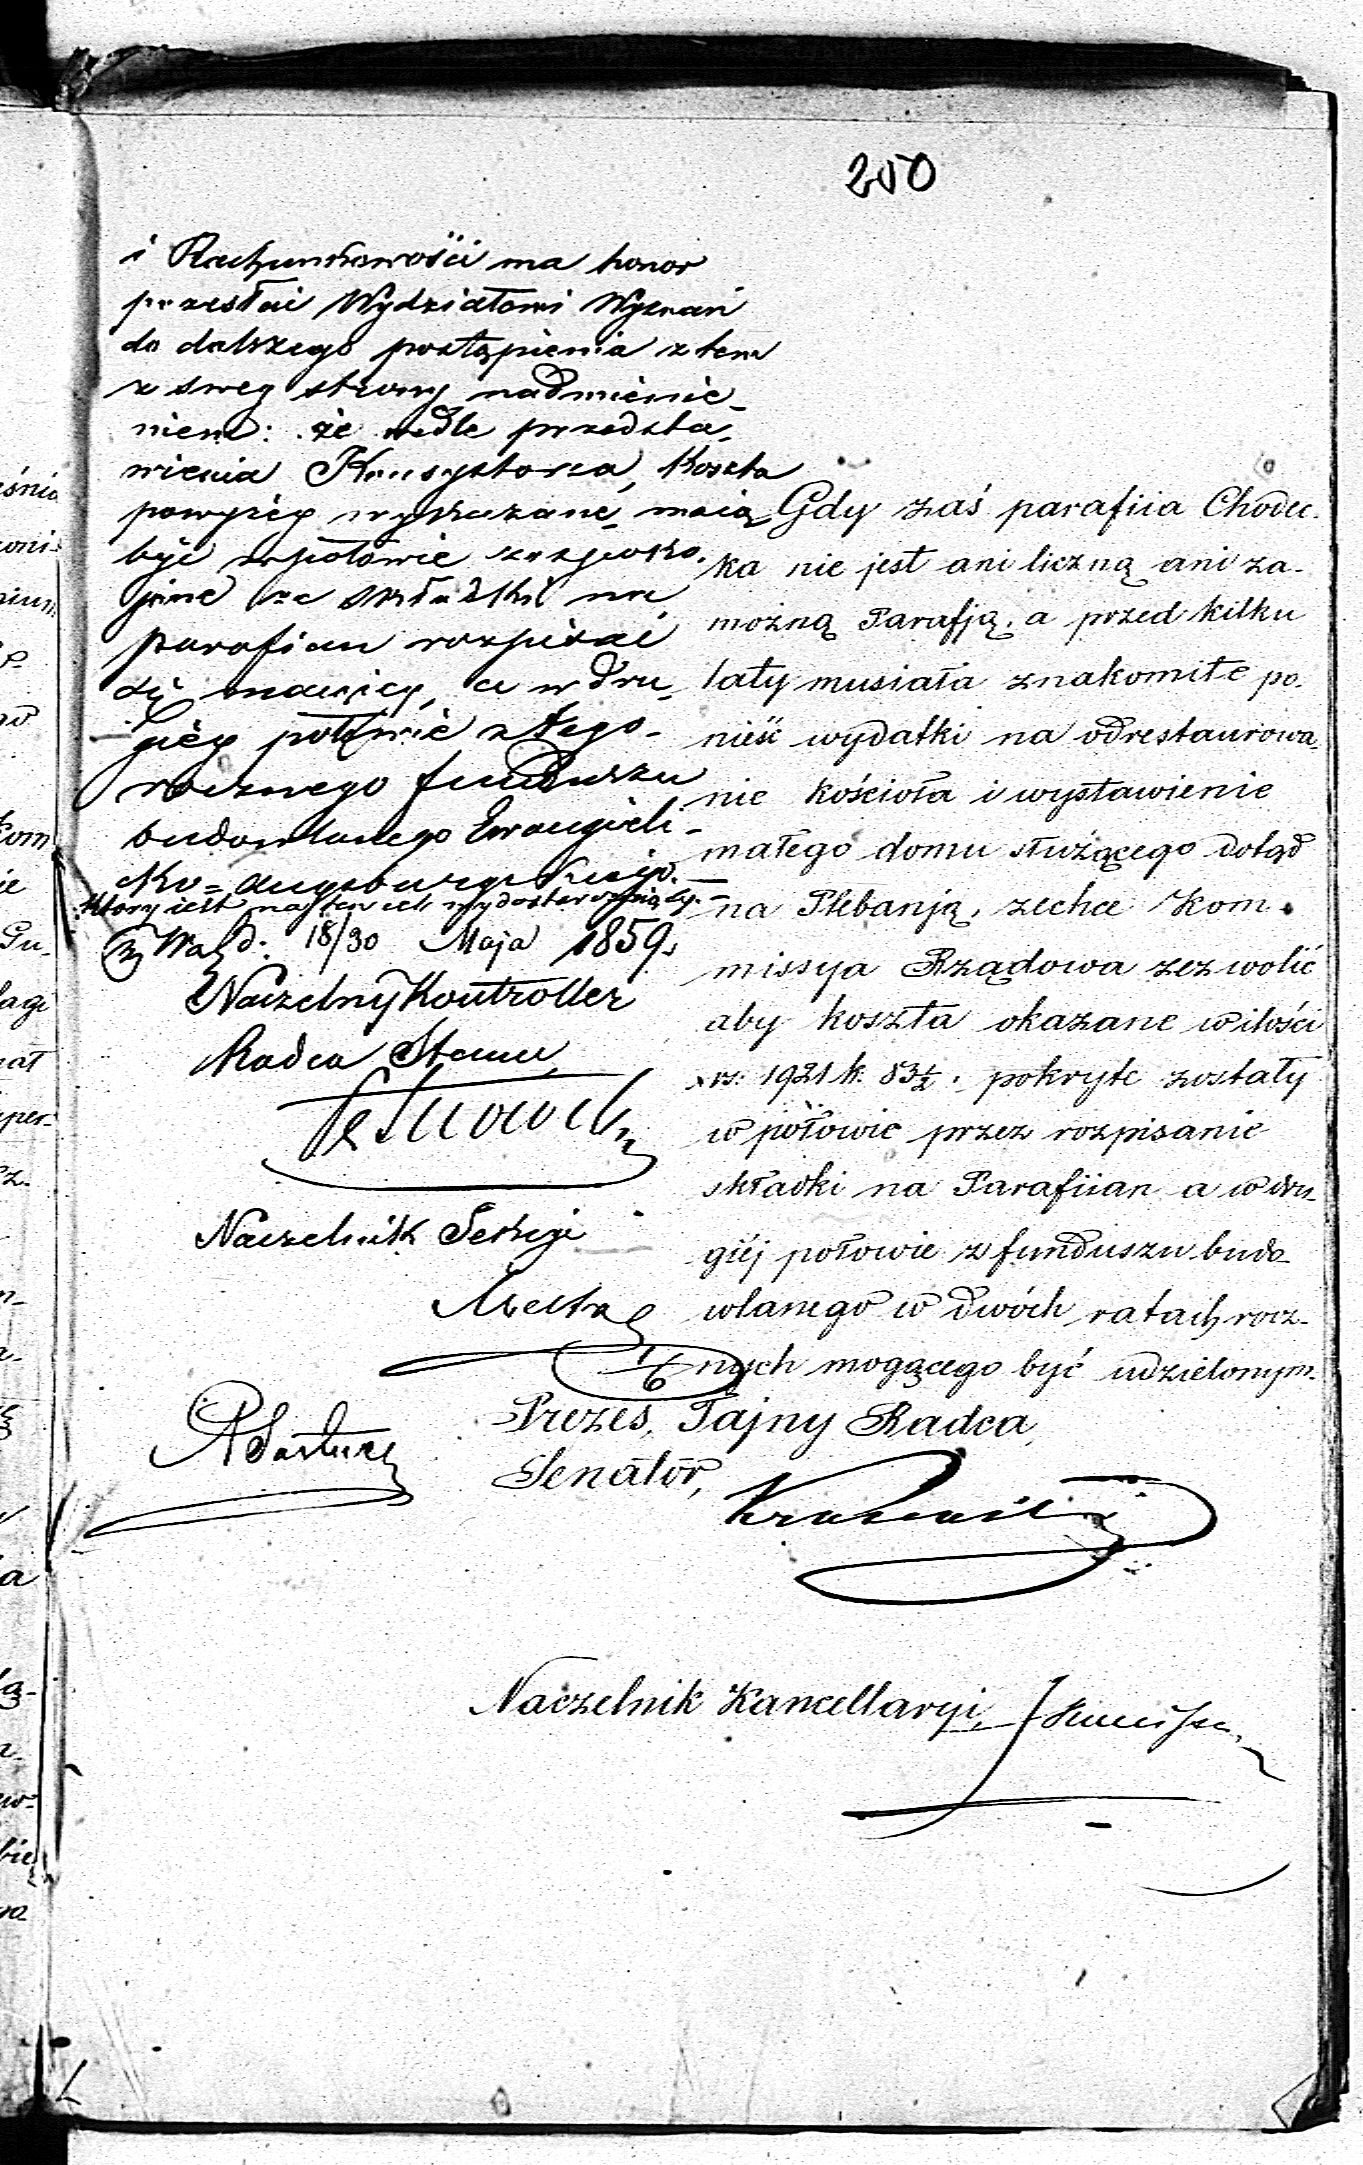 250
i Rachunkowości ma honor
przesłać Wydziałowi Wyznań
do dalszego postąpienia z tem
z swey strony nadmienie-
niem: że wedle przedsta-
wienia Konsystorza, koszta
powyżey wykazane, maią
być w połowie zaspoko-
jone ze składki na
parafian rozpisać
się maiącey, a w dru-
giéy połowie z
rocznego funduszu
budowlanego Ewangieli-
cko=augsburgskiego.
który iest na ten cel
W d. 18/30 Maja 1859.
Naczelny Kontroller
Radca Stanu
Naczelnik Sekcyi
Gdy zaś parafiia Chodec-
ka nie jest ani liczną ani za-
możną Parafją, a przed kilku
laty musiała znakomite po-
nieść wydatki na odrestaurowa-
nie kościoła i wystawienie
małego domu służącego dotąd
na Plebanją, zechce Kom-
missya Rządowa zezwolić
aby koszta okazane w ilości
rs: 1921 k. 83½. pokryte zostały
w połowie przez rozpisanie
składki na Parafiian a w dru-
giéj połowie z funduszu budo-
wlanego w dwóch ratach rocz-
nych mogącego być udzielonym.
Prezes, Tajny Radca,
Senator,
Naczelnik Kancellaryi,